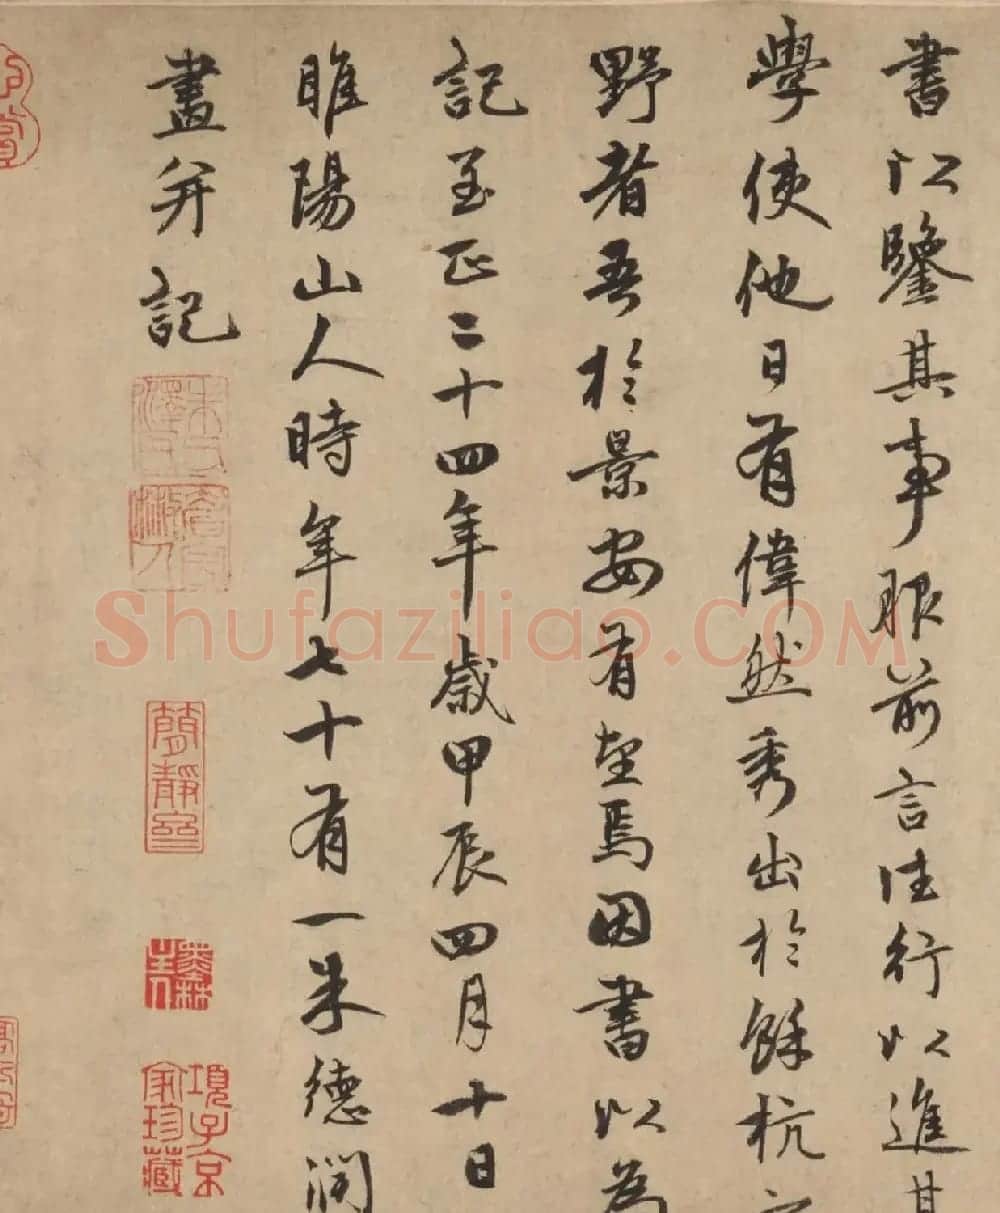 書以鑒其事眼前言往行以進其
學使他日有偉然秀出於餘杭之
野者吾於景安有望焉因書以為
記至正二十四年歲甲辰四月十日
睢陽山人時年七十有一朱德潤
畫并記
簡靜齋
項子京
家珍藏
Shufaziliao.COM